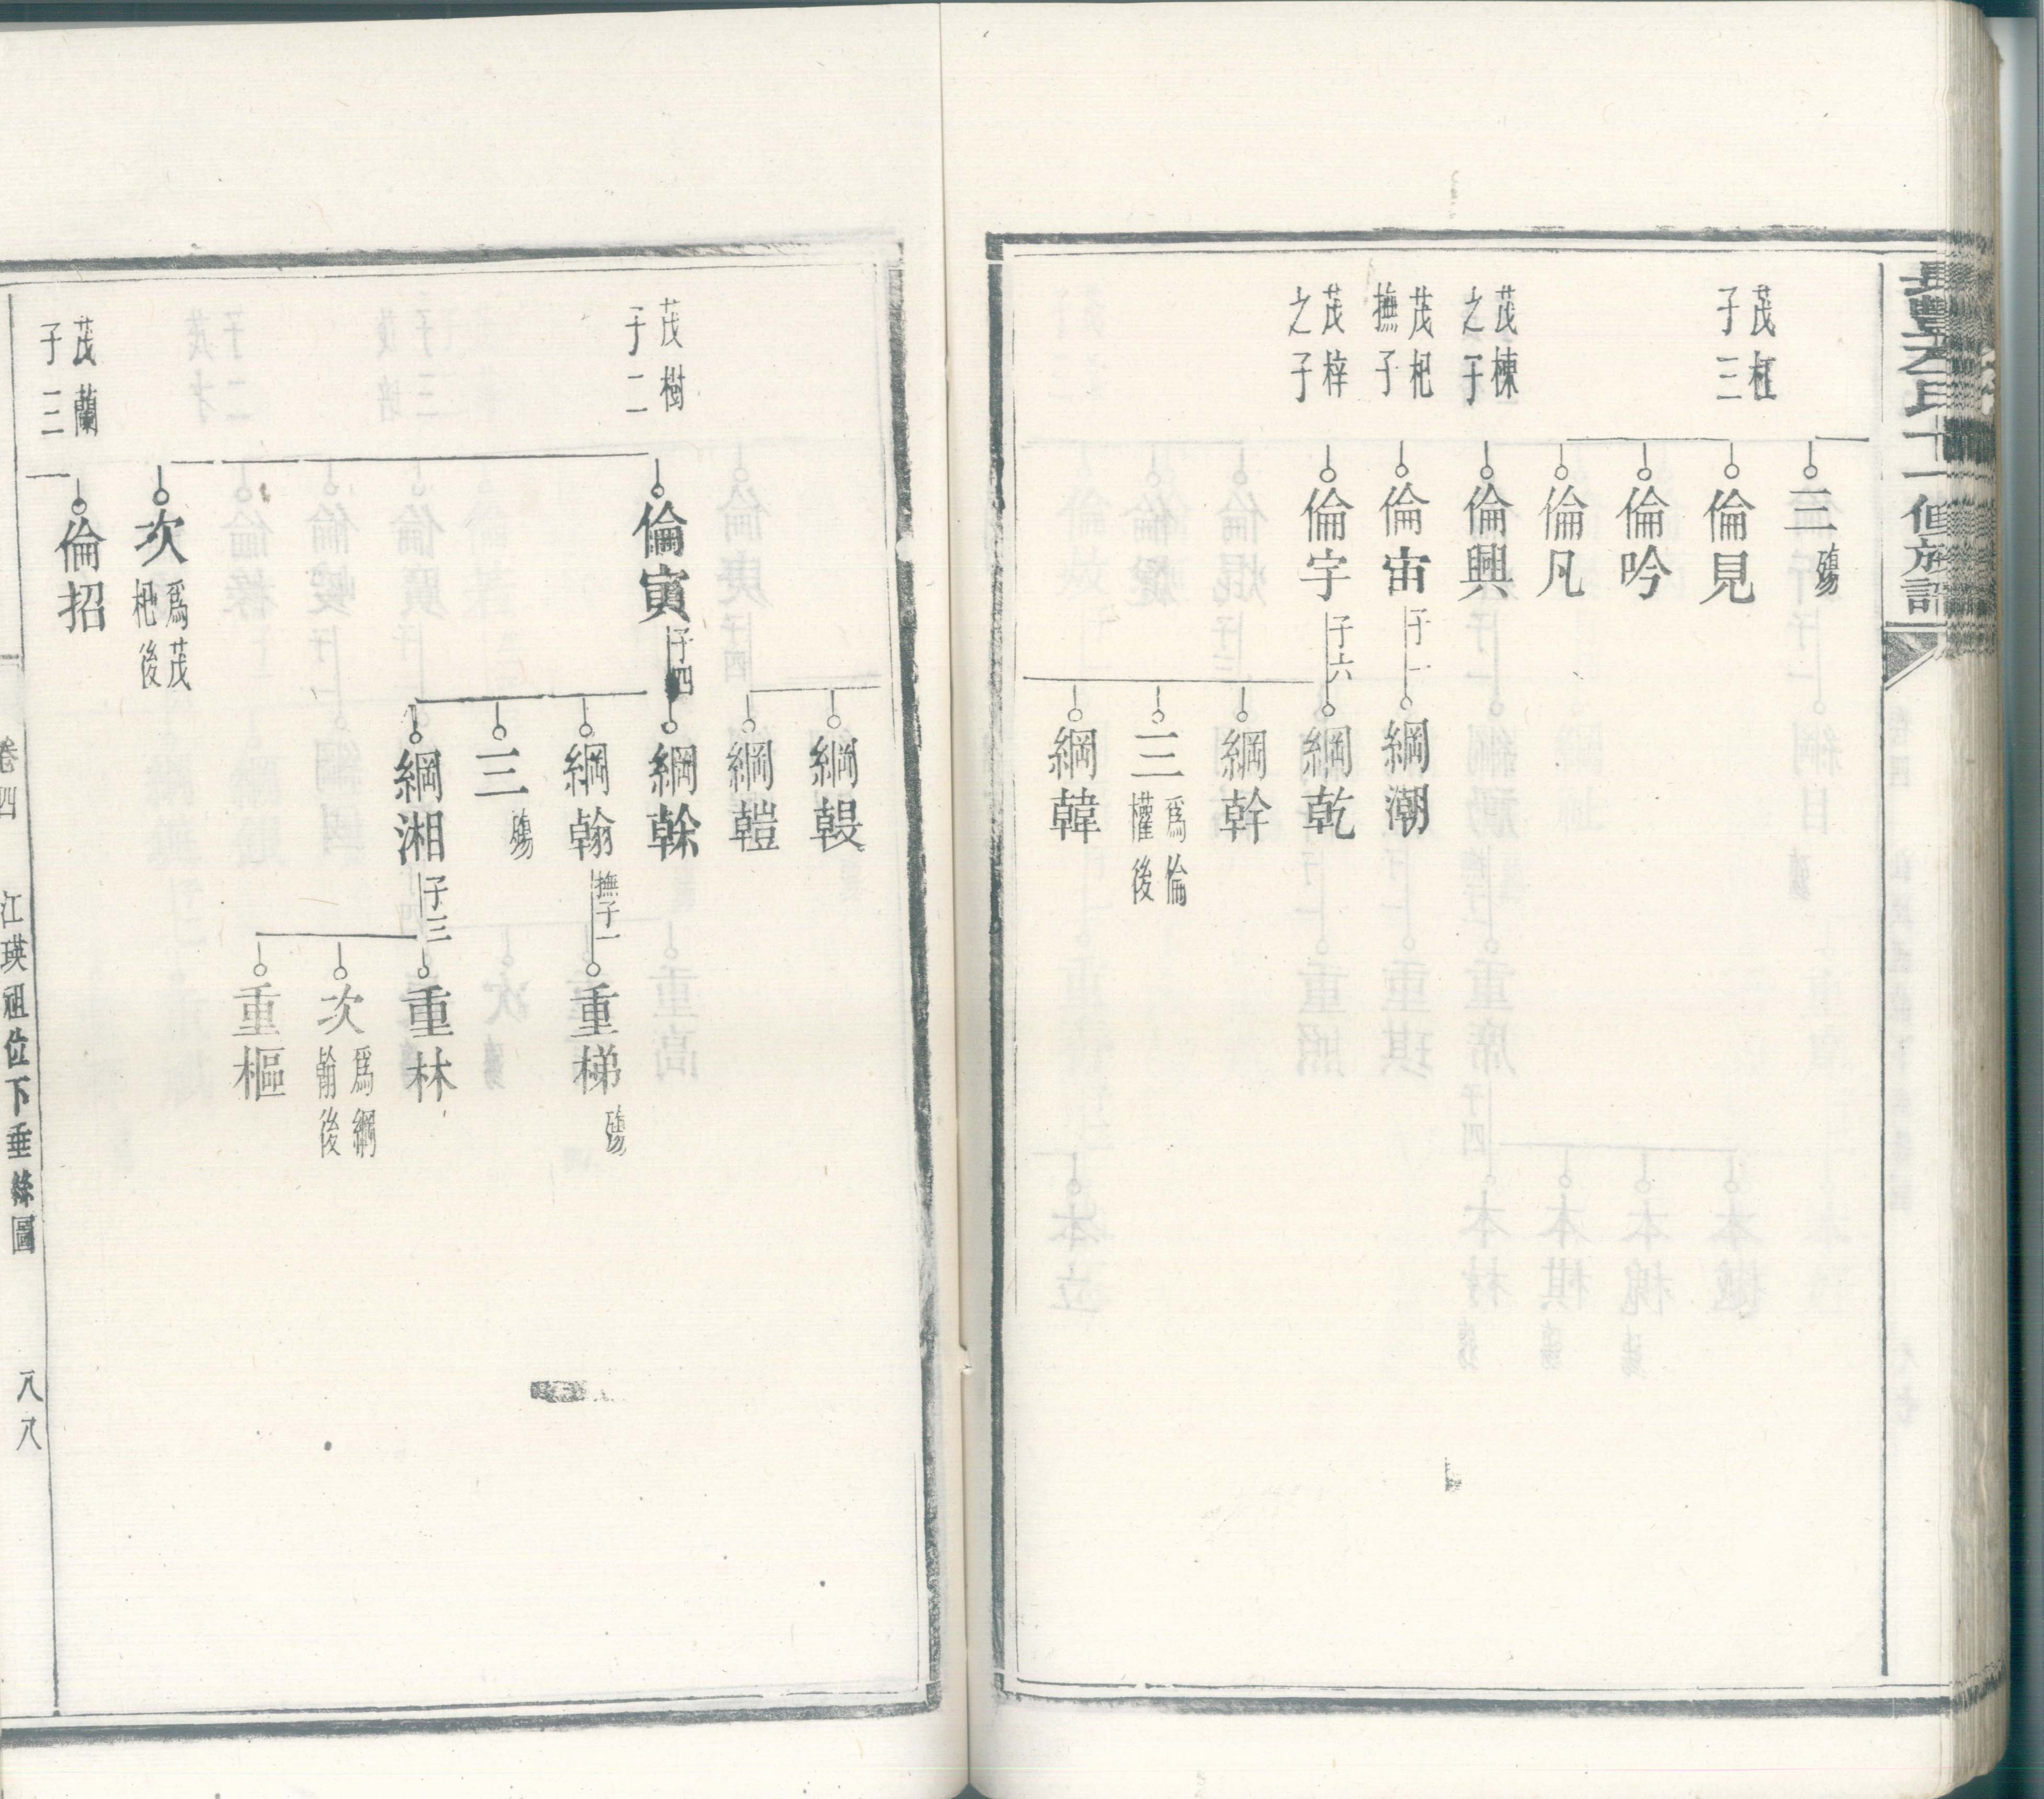 氏十一修族譜
三 殤
茂枉
子三
倫見
倫吟
倫凡
茂棟
之子
倫興
茂杷
撫子
倫宙
子一
綱潮
茂梓
之子
倫宇
子六
綱乾
綱幹
三
為倫
權後
綱韓
綱
綱
茂樹
子二
倫寅
子四
綱榦
綱翰
撫子一
重梯
殤
三
殤
綱湘
子三
重林
次
為綱
翰後
重樞
次
為茂
杷後
茂蘭
子三
倫招
卷四
江瑛祖位下垂絲圖
八八